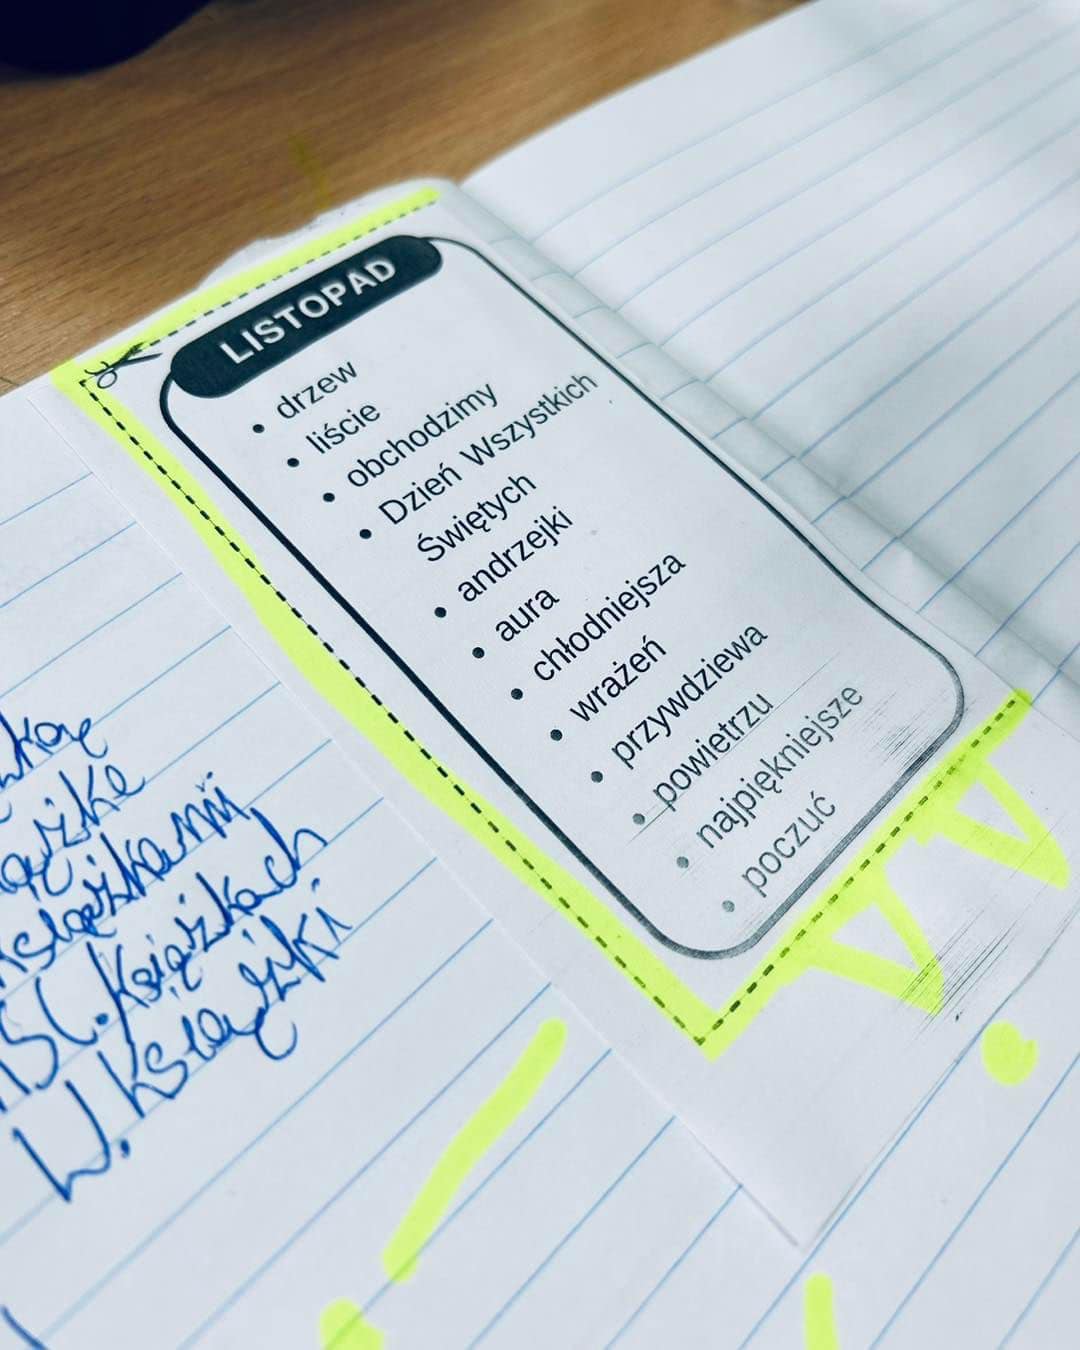 LISTOPAD
• drzew
• liście
• obchodzimy
• Dzień Wszystkich
Świętych
• andrzejki
• aura
• chłodniejsza
• wrażeń
• przywdziewa
• powietrzu
• najpiękniejsze
• poczuć
książkach
W. Książki